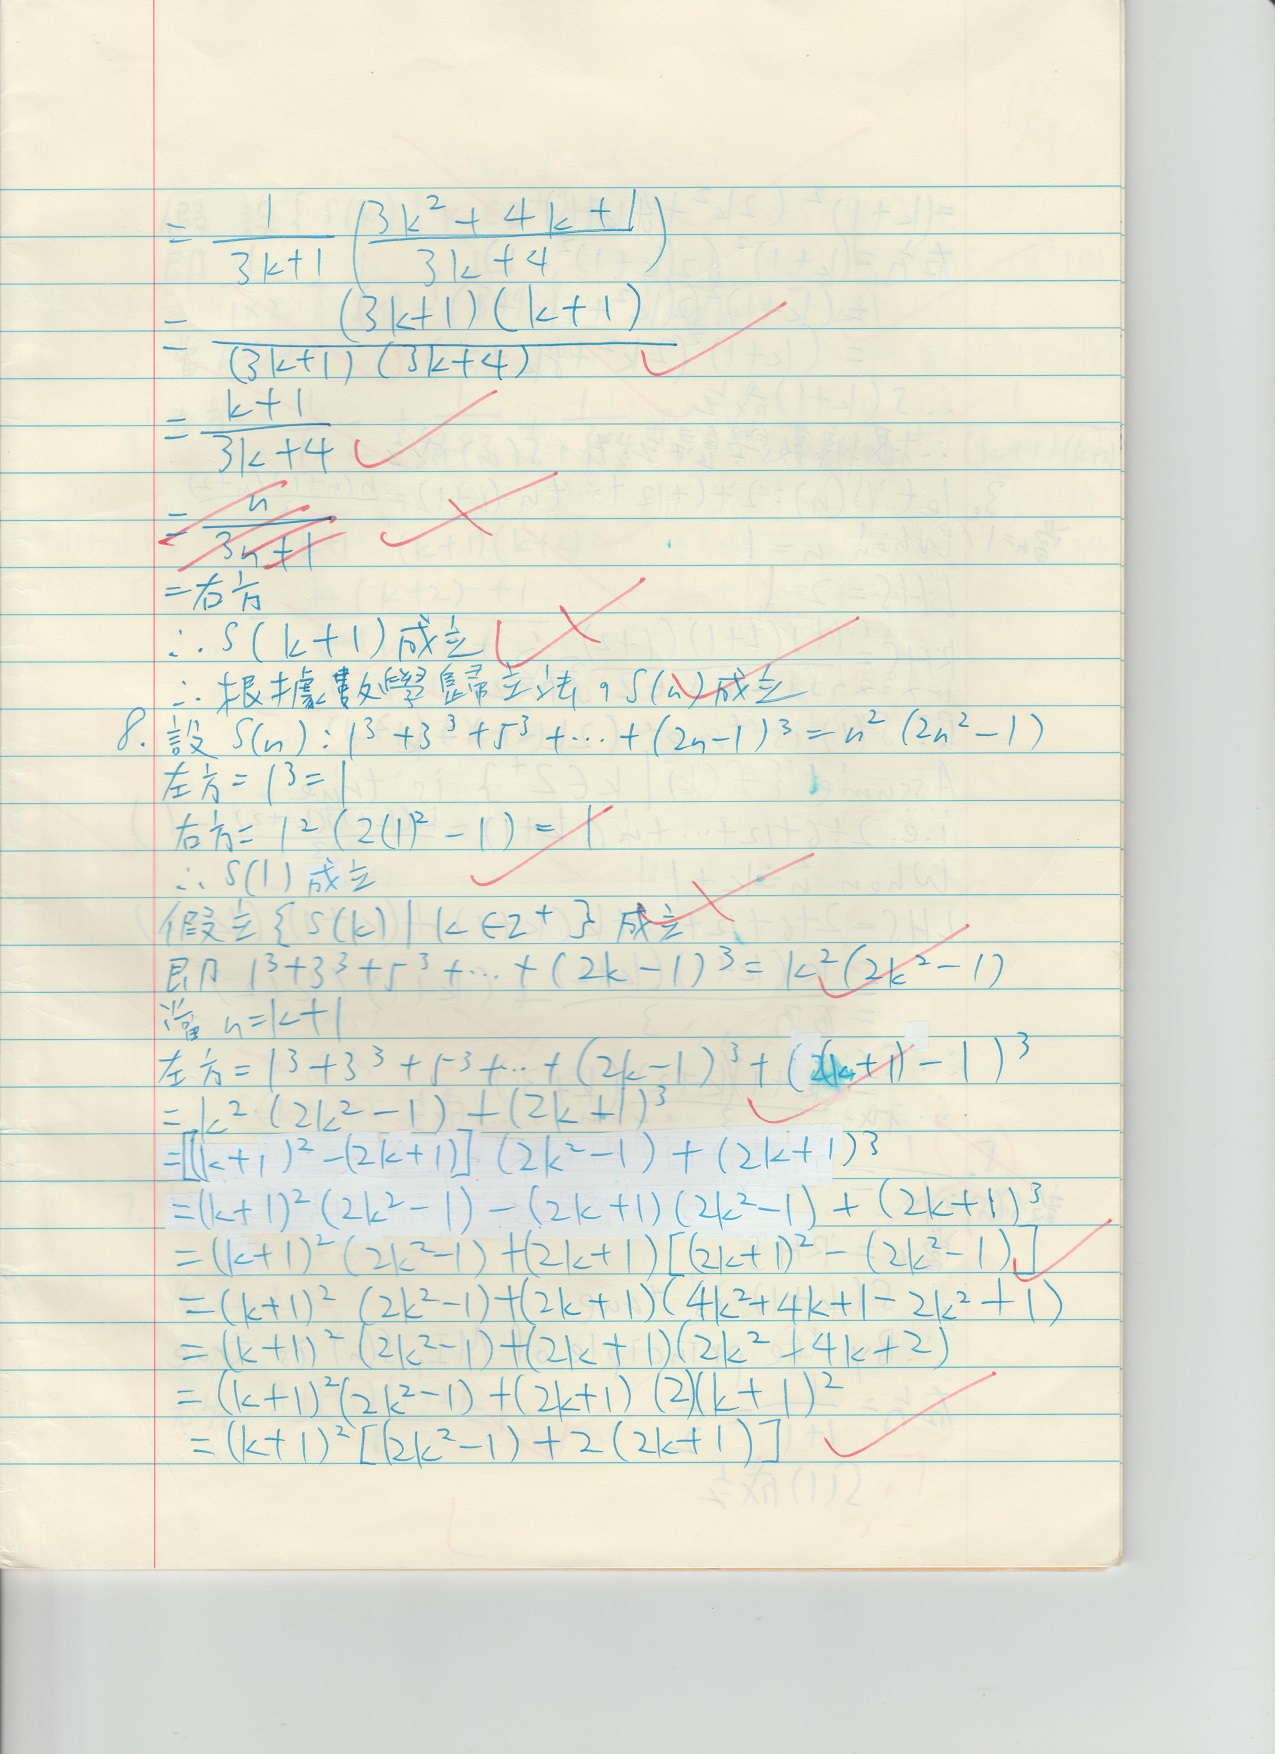 = 1/(3k+1) ((3k²+4k+1)/(3k+4))
= (3k+1)(k+1)/((3k+1)(3k+4))
= (k+1)/(3k+4)
= n/(3n+1)
=右方
∴ S(k+1) 成立
∴ 根據數學歸立法，S(n)成立
8. 設 S(n) : 1³+3³+5³+…+(2n-1)³=n²(2n²-1)
左方=1³=1
右方=1²(2(1)²-1)=1
∴ S(1) 成立
假立{S(k)|k∈Z⁺}成立
即 1³+3³+5³+…+(2k-1)³=k²(2k²-1)
當 n=k+1
左方=1³+3³+5³+…+(2k-1)³+(2(k+1)-1)³
=k²(2k²-1)+(2k+1)³
=[(k+1)²-(2k+1)](2k²-1)+(2k+1)³
=(k+1)²(2k²-1)-(2k+1)(2k²-1)+(2k+1)³
=(k+1)²(2k²-1)+(2k+1)[(2k+1)²-(2k²-1)]
=(k+1)²(2k²-1)+(2k+1)(4k²+4k+1-2k²+1)
=(k+1)²(2k²-1)+(2k+1)(2k²+4k+2)
=(k+1)²(2k²-1)+(2k+1)(2)(k+1)²
=(k+1)²[(2k²-1)+2(2k+1)]